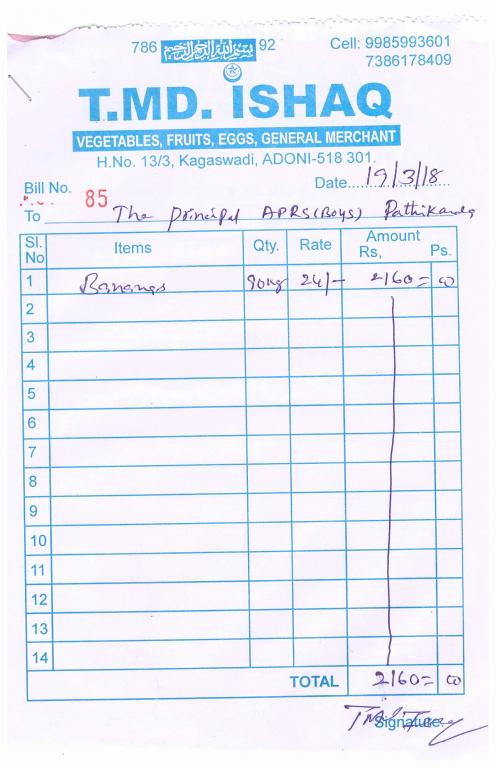 786 بسم الله الرحمن الرحيم 92
Cell: 9985993601
7386178409
T.MD. ISHAQ
VEGETABLES, FRUITS, EGGS, GENERAL MERCHANT
H.No. 13/3, Kagaswadi, ADONI-518 301.
Bill No. 85 Date 19/3/18
To The principal APRS(Boys) Pathikonda
Sl. No Items Qty. Rate Amount Rs, Ps.
1 Bananas 90kg 24/- 2160= 00
2
3
4
5
6
7
8
9
10
11
12
13
14
TOTAL 2160= 00
Signature.